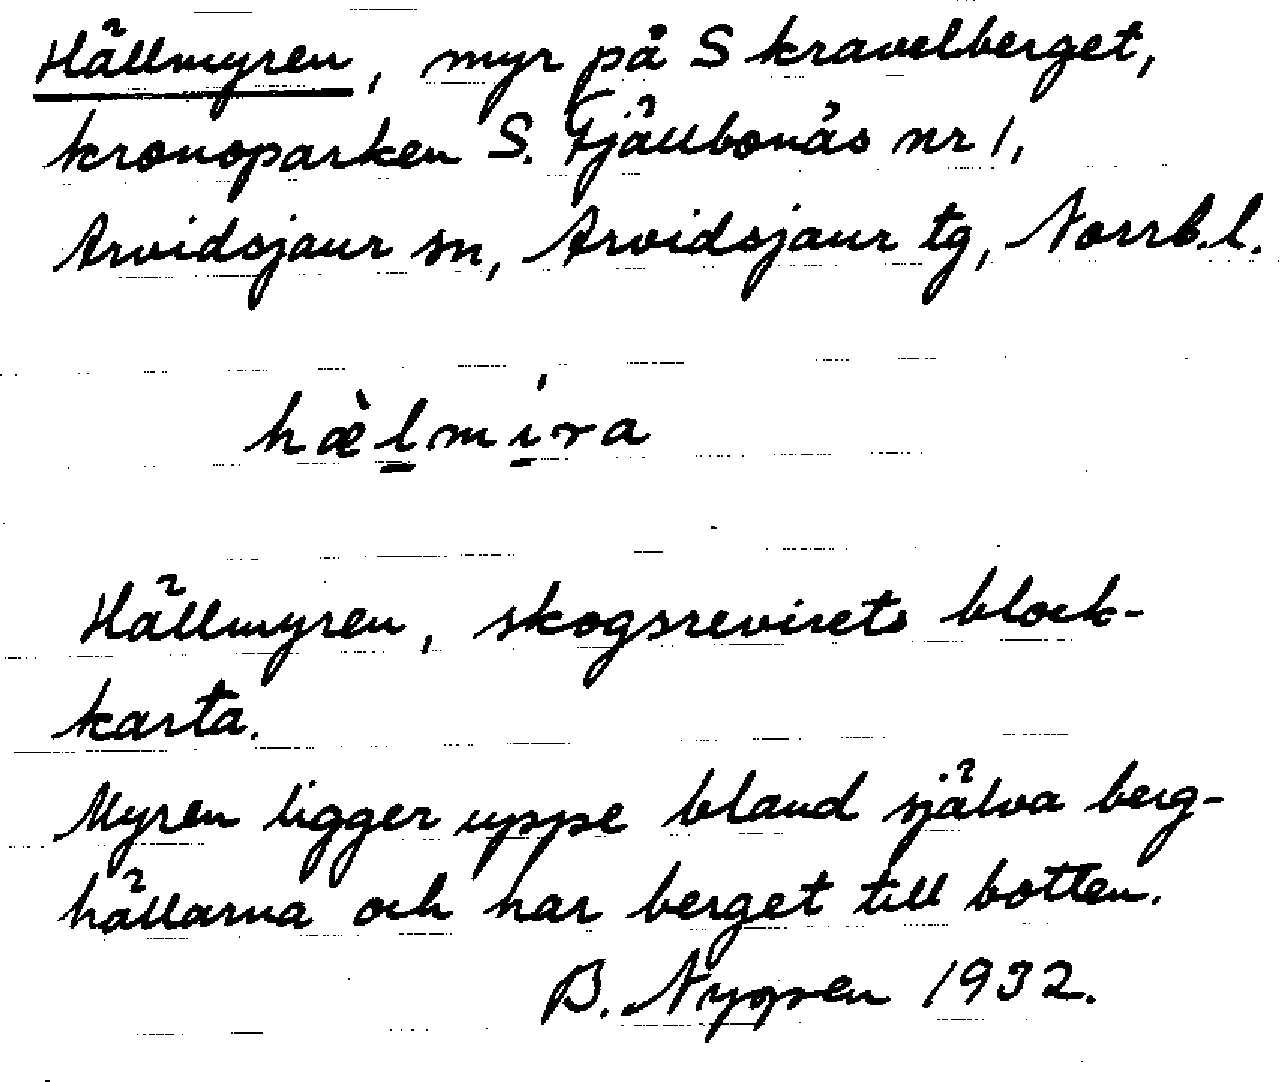 Hällmyren, myr på Skravelberget,
kronoparken S. Fjällbonäs nr 1,
Arvidsjaur sn, Arvidsjaur tg, Norrb.l.
hæ̀lmíra
Hällmyren, skogsrevirets block-
karta.
Myren ligger uppe bland själva berg-
hällarna och har berget till botten.
B. Nygren 1932.